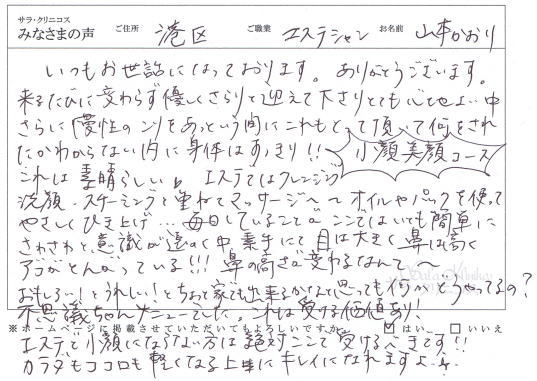 サラ・クリニコス
みなさまの声 ご住所 港区 ご職業 エステシャン お名前 山本かおり
いつもお世話になっております。ありがとうございます。
来るたびに変わらず優しくさらりと迎えて下さりとても心地よい中
さらに慢性のコリをあっという間にこれもとって頂いて何をされ
たかわからない内に身体はすっきり!! 小顔美顔コース
これは素晴らしい。エステではクレンジング
洗顔・スチーミングと重ねてマッサージへ〜オイルやパックを使って
やさしくひき上げ…毎日していることが ここではいても簡単に
さわさわと、意識が遠のく中、素手にて 目は大きく鼻は高く
アゴがとんがっている!!! 鼻の高さが変わるなんて〜
おもしろい!とうれしい!とちょっと家でも出来るかなと思っても何がどうやってるの?
不思議ちゃんメニューでした。これは受ける価値あり!
※ホームページに掲載させていただいてもよろしいですか ☑はい ☐いいえ
エステで小顔にならない方は絶対ここで受けるべきです!!
カラダもココロも軽くなる上に キレイになれますよ